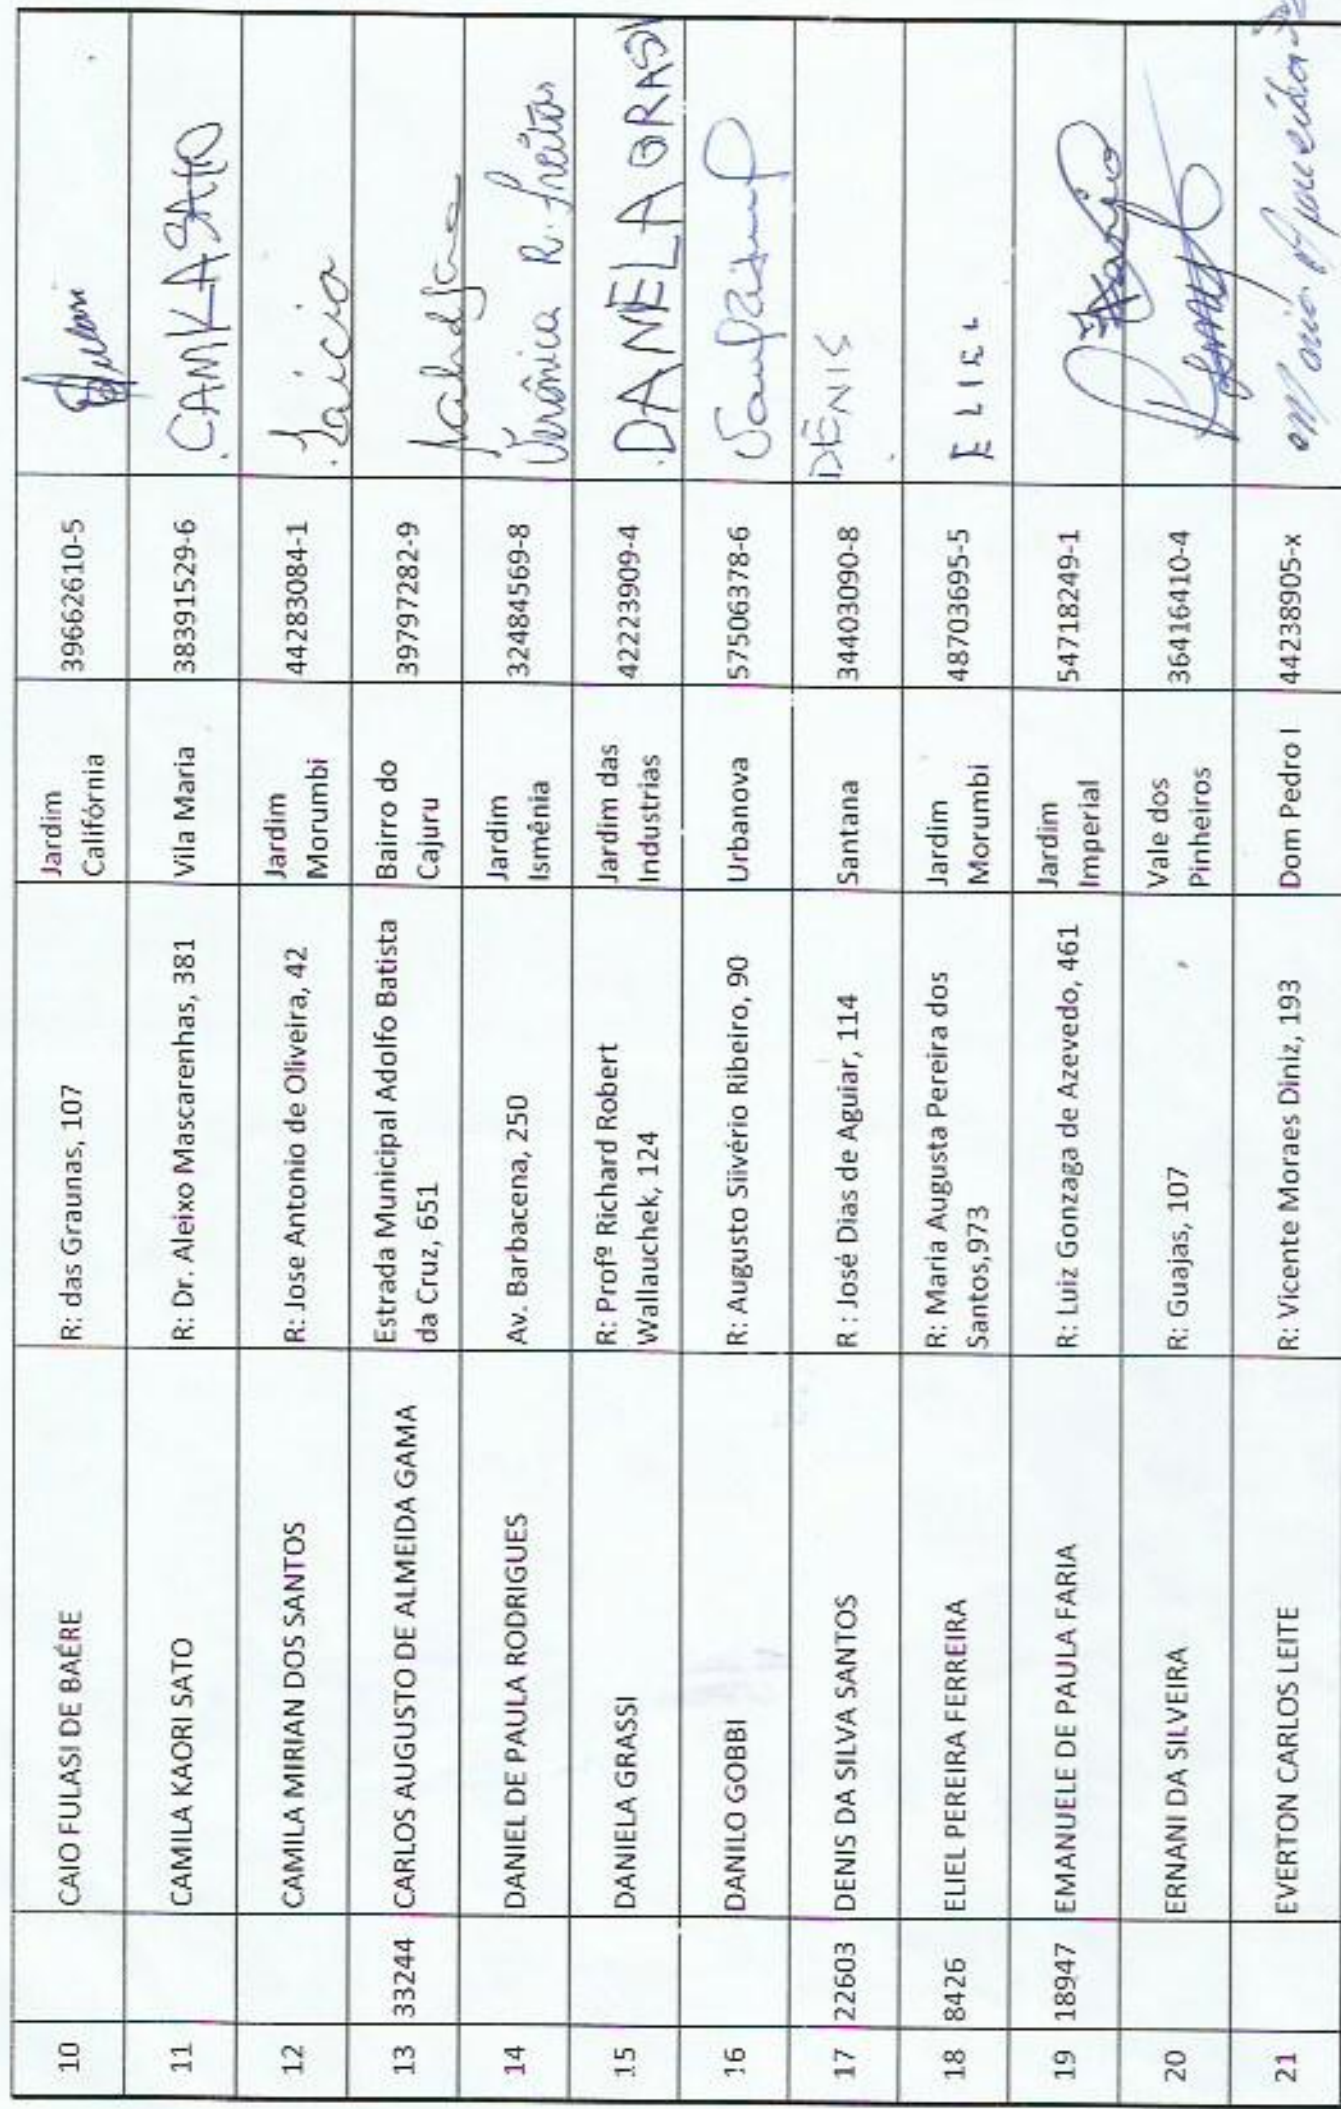 10 CAIO FULASI DE BAÉRE R: das Graunas, 107 Jardim Califórnia 39662610-5
11 CAMILA KAORI SATO R: Dr. Aleixo Mascarenhas, 381 Vila Maria 38391529-6
12 CAMILA MIRIAN DOS SANTOS R: Jose Antonio de Oliveira, 42 Jardim Morumbi 44283084-1
13 33244 CARLOS AUGUSTO DE ALMEIDA GAMA Estrada Municipal Adolfo Batista da Cruz, 651 Bairro do Cajuru 39797282-9
14 DANIEL DE PAULA RODRIGUES Av. Barbacena, 250 Jardim Ismênia 32484569-8 Verônica R. Freitas
15 DANIELA GRASSI R: Profº Richard Robert Wallauchek, 124 Jardim das Industrias 42223909-4 DANIELA GRASSI
16 DANILO GOBBI R: Augusto Silvério Ribeiro, 90 Urbanova 57506378-6
17 22603 DENIS DA SILVA SANTOS R : José Dias de Aguiar, 114 Santana 34403090-8 DENIS
18 8426 ELIEL PEREIRA FERREIRA R: Maria Augusta Pereira dos Santos,973 Jardim Morumbi 48703695-5 ELIEL
19 18947 EMANUELE DE PAULA FARIA R: Luiz Gonzaga de Azevedo, 461 Jardim Imperial 54718249-1
20 ERNANI DA SILVEIRA R: Guajas, 107 Vale dos Pinheiros 36416410-4
21 EVERTON CARLOS LEITE R: Vicente Moraes Diniz, 193 Dom Pedro I 44238905-x Maria Aparecida